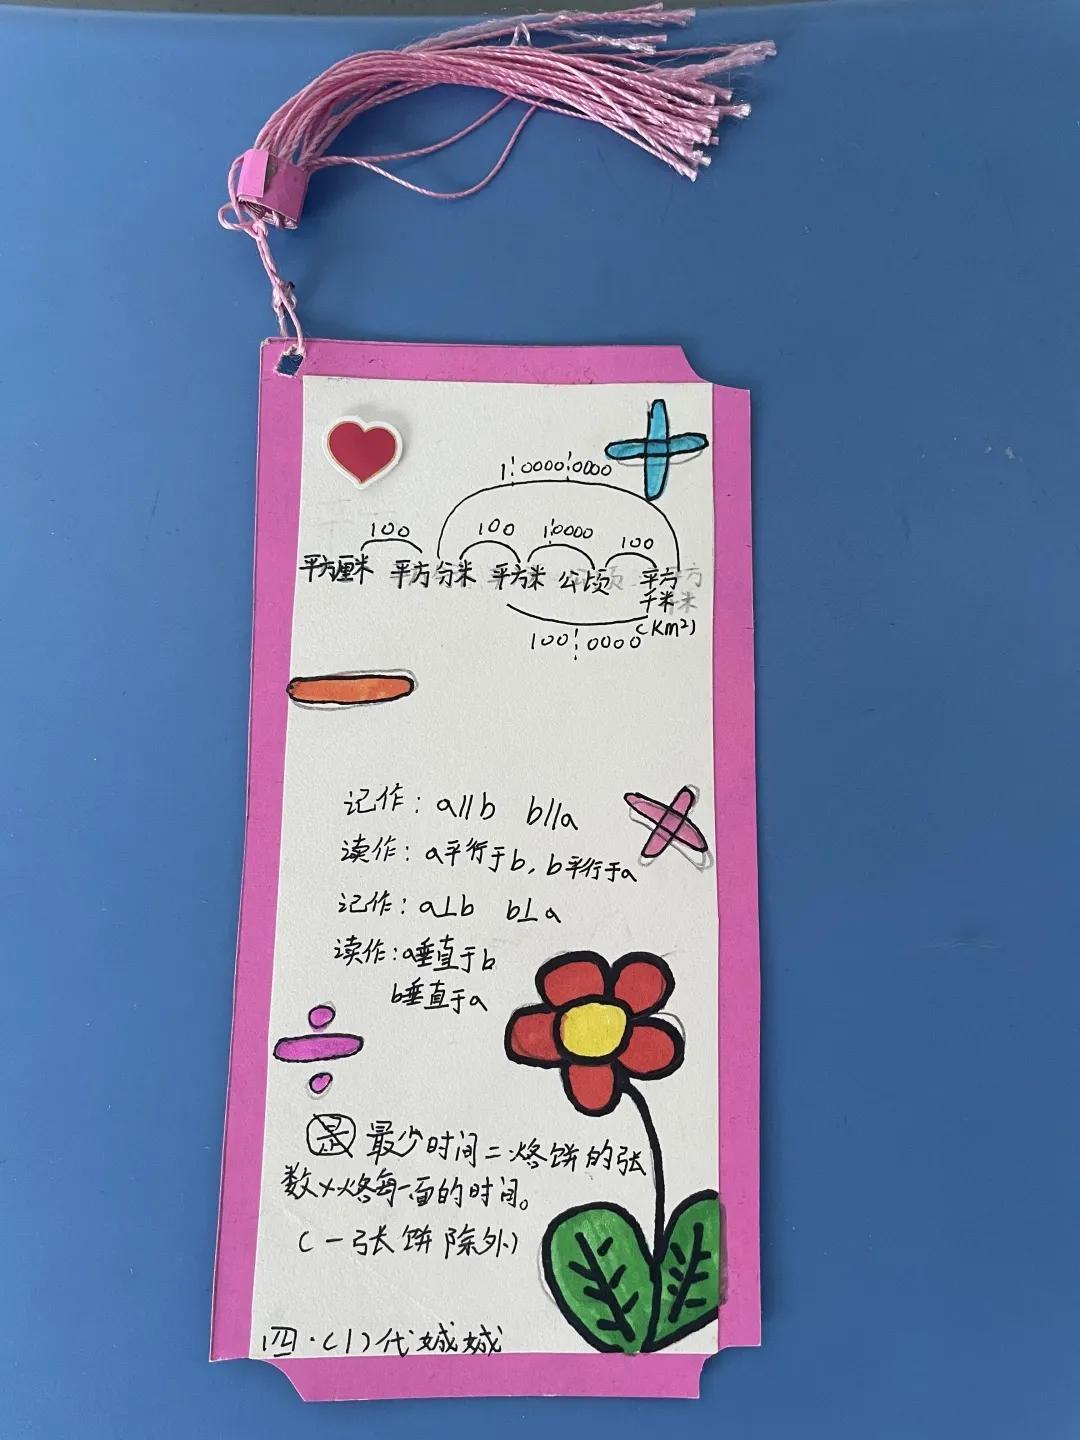 1┆0000┆0000
100 100 1┆0000 100
平方厘米 平方分米 平方米 公顷 平方
千米
(Km²)
100┆0000
记作：a∥b b∥a
读作：a平行于b，b平行于a
记作：a⊥b b⊥a
读作：a垂直于b
b垂直于a
最少时间=烙饼的张
数×烙每一面的时间。
(一张饼除外)
四·(1)代城城